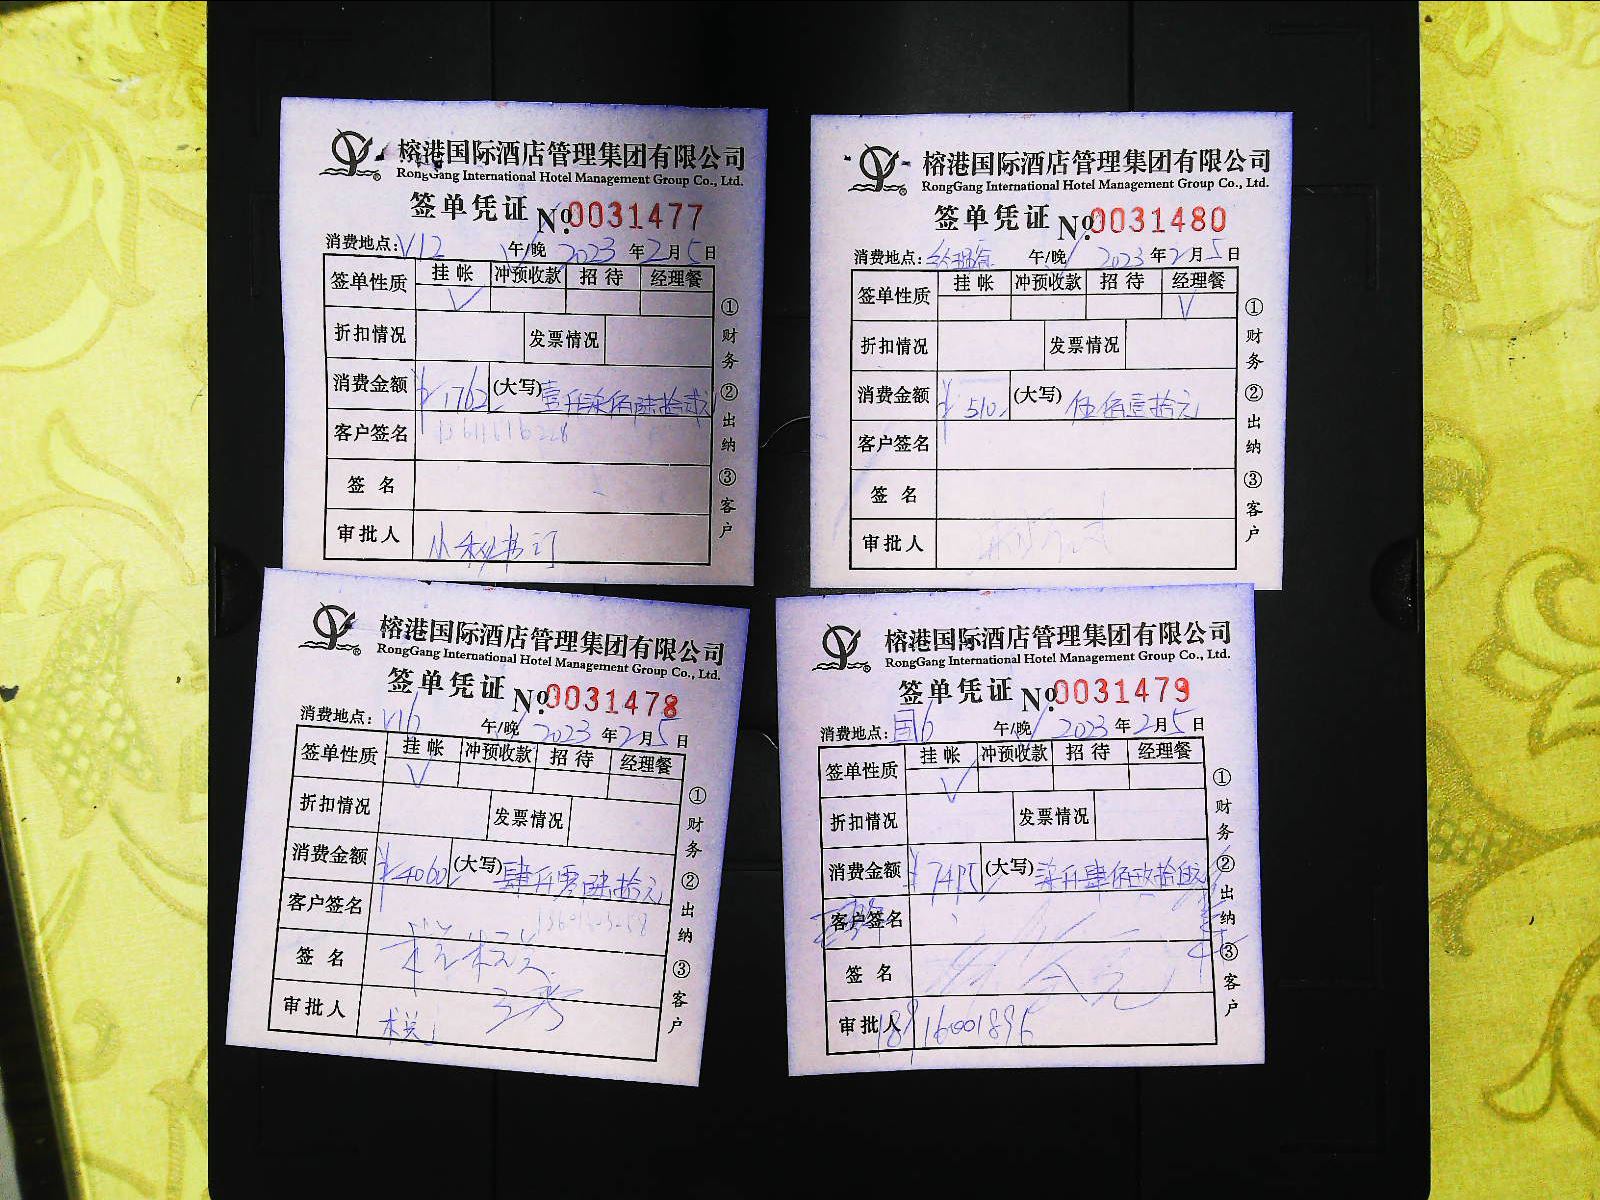 榕港国际酒店管理集团有限公司
RongGang International Hotel Management Group Co., Ltd.
签单凭证 №0031477
消费地点:V12 午/晚 2023 年 2 月 5 日
签单性质 挂帐 冲预收款 招待 经理餐
√
折扣情况 发票情况
消费金额 ¥1762 (大写) 壹仟柒佰陆拾贰元
客户签名
签名
审批人 小秘书订
①财务 ②出纳 ③客户
榕港国际酒店管理集团有限公司
RongGang International Hotel Management Group Co., Ltd.
签单凭证 №0031480
消费地点: 午/晚 2023 年 2 月 5 日
签单性质 挂帐 冲预收款 招待 经理餐
√
折扣情况 发票情况
消费金额 ¥510 (大写) 伍佰壹拾元
客户签名
签名
审批人
①财务 ②出纳 ③客户
榕港国际酒店管理集团有限公司
RongGang International Hotel Management Group Co., Ltd.
签单凭证 №0031478
消费地点:V16 午/晚 2023 年 2 月 5 日
签单性质 挂帐 冲预收款 招待 经理餐
√
折扣情况 发票情况
消费金额 ¥4060 (大写) 肆仟零陆拾元
客户签名
签名
审批人
①财务 ②出纳 ③客户
榕港国际酒店管理集团有限公司
RongGang International Hotel Management Group Co., Ltd.
签单凭证 №0031479
消费地点:国6 午/晚 2023 年 2 月 5 日
签单性质 挂帐 冲预收款 招待 经理餐
√
折扣情况 发票情况
消费金额 (大写)
客户签名
签名
审批人 18916001896
①财务 ②出纳 ③客户